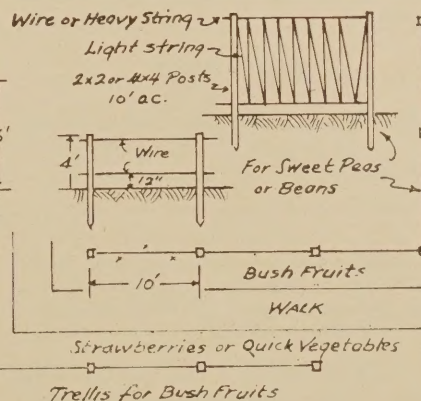 Wire or Heavy String
Light string
2x2 or 4x4 Posts
10' o.c.
5'
4'
Wire
12"
For Sweet Peas
or Beans
10'
Bush Fruits
WALK
Strawberries or Quick Vegetables
Trellis for Bush Fruits